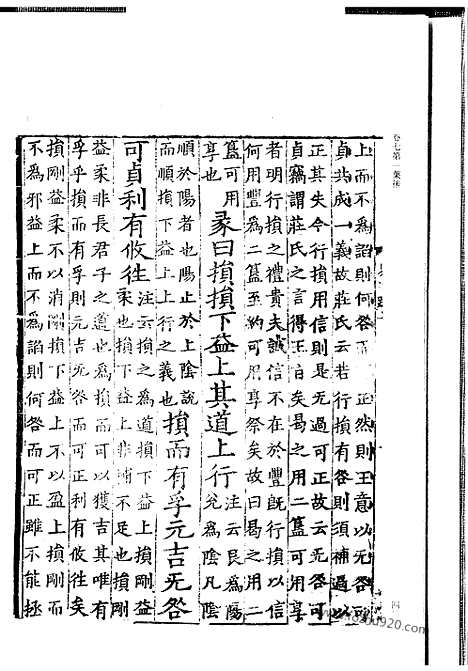 卷七第一葉後
上而不爲諂則何咎 正然則王意以无咎可
貞共成一義故莊氏云若行損有咎則須補過以
正其失今行損用信則是无過可正故云无咎可
貞竊謂莊氏之言得王旨矣曷之用二簋可用享
者明行損之禮貴夫誠信不在於豐旣行損以信
何用豐爲二簋至約可用享祭矣故曰曷之用二
簋可用
享也
彖曰損損下益上其道上行
注云艮爲陽
兌爲陰凡陰
順於陽者也陽止於上陰說
而順損下益上上行之義也
損而有孚元吉无咎
可貞利有攸往
注云損之爲道損下益上損剛益
柔也損下益上非補不足也損剛
益柔非長君子之道也爲損而可以獲吉其唯有
孚乎損而有孚則元吉无咎而可正利有攸往矣
損剛益柔不以消剛損下益上不以盈上損剛而
不爲邪益上而不爲諂則何咎而可正雖不能拯
四